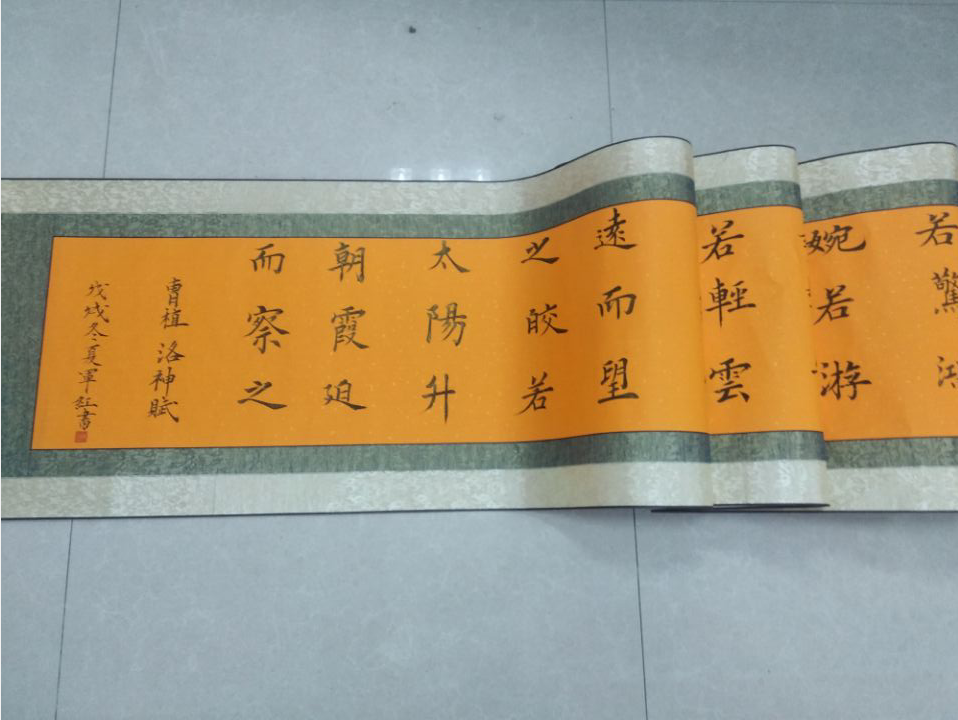 若驚
婉若游
若輕雲
遠而望
之皎若
太陽升
朝霞廹
而察之
曹植 洛神賦
戊戌冬夏軍紅書